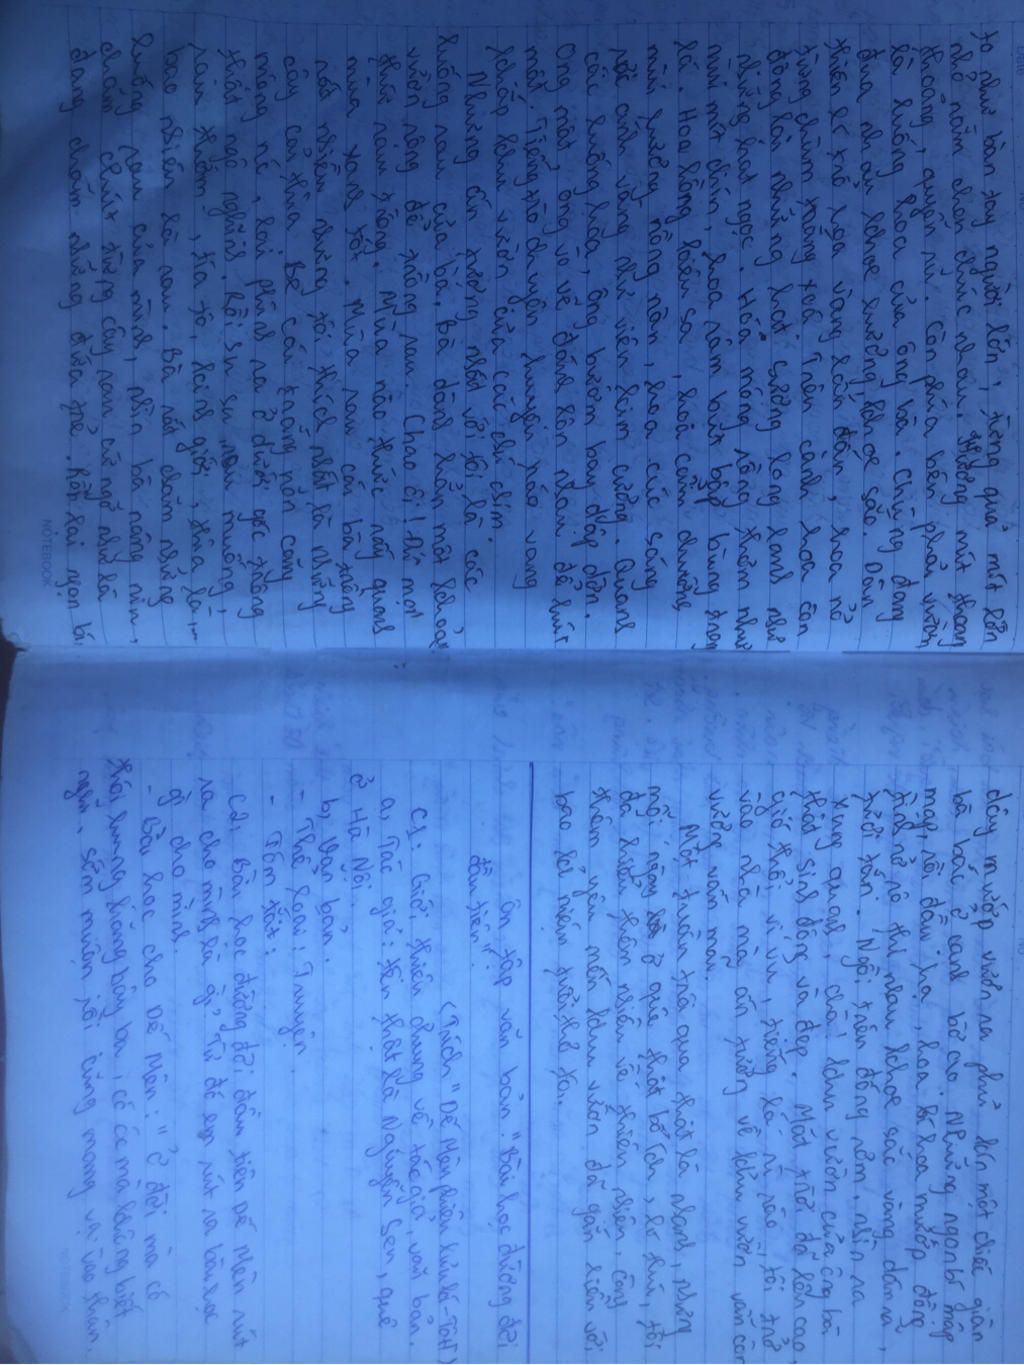 to như bàn tay người lớn, từng quả mít lớn
nhỏ nằm chen chúc nhau. Hương mít thơm
thoảng, quyến rũ. Còn phía bên phải vườn
là luống hoa của ông bà. Chúng đang
đua nhau khoe hương khoe sắc. Dàn
thiên lí trổ hoa vàng lấm tấm, hoa nở
từng chùm trông xoã. Trên cánh hoa còn
đọng lại những hạt sương long lanh như
những hạt ngọc. Hoa móng rồng thơm như
mùi mít chín, hoa râm bụt bập bùng
lá. Hoa hồng kiêu sa, hoa cẩm chướng
mùi hương nồng nàn, hoa cúc sáng
rồi ánh vàng như viên kim cương. Quanh
các luống hoa, ông bướm bay dập dờn.
Ong mật, ong vò vẽ đánh lộn nhau để hút
mật. Tiếng trò chuyện huyên náo vang
khắp khu vườn của các chú chim.
Nhưng ấn tượng nhất với tôi là các
luống rau của bà. Bà dành hẳn một khoảng
vườn rộng để trồng rau. Chao ôi! Đủ mọi
thức rau trồng. Mùa nào thức nấy quanh
mùa xanh tốt. Mùa rau cải bà trồng
rất nhiều nhưng tôi thích nhất là những
cây cải thìa. Bẹ cải trắng nõn căng
mọng nước, lại phình ra ở dưới gốc trông
thật ngộ nghĩnh. Rồi su su, rau muống,
rau thơm, tía tô, kinh giới, thìa là,...
bao nhiêu là rau. Bà rất chăm những
luống rau của mình, nhìn bà nâng niu,
chăm chút từng cây rau cứ ngỡ như là
đang chăm những đứa trẻ. Rồi lại ngọn bí,
dây mướp vươn ra phủ kín một chiếc giàn
bà bắc ở cạnh bờ ao. Những ngọn bí mập
mạp, rồi đậu hạ, hoa bí hoa mướp đồng
tình nở rộ thi nhau khoe sắc vàng đằm,
tươi tắn. Ngồi trên đống rơm, nhìn ra
xung quanh, chà! khu vườn của ông bà
thật sinh động và đẹp. Mặt trời đã lên cao
gió thổi vi vu, tiếng lá rì rào, tôi trở
vào nhà mà ấn tượng về khu vườn vẫn còn
vương vấn mãi.
Một tuần trôi qua thật là nhanh, nhưng
mỗi ngày ở quê thật bổ ích, lí thú, tôi
đã hiểu thêm nhiều về thiên nhiên, càng
thêm yêu mến khu vườn đã gắn liền với
bao kỉ niệm tuổi thơ tôi.
Ôn tập văn bản: "Bài học đường đời
đầu tiên".
(Trích "Dế Mèn phiêu lưu kí" - Tô Hoài)
C1. Giới thiệu chung về tác giả, văn bản.
a, Tác giả: tên thật là Nguyễn Sen, quê
ở Hà Nội.
b, Văn bản.
- Thể loại: Truyện.
- Tóm tắt:
C2, Bài học đường đời đầu tiên Dế Mèn rút
ra cho mình là gì, Từ đó em rút ra bài học
gì cho mình.
- Bài học cho Dế Mèn: "Ở đời mà có
thói hung hăng bậy bạ, có óc mà không biết
nghĩ, sớm muộn rồi cũng mang vạ vào thân.
NOTEBOOK